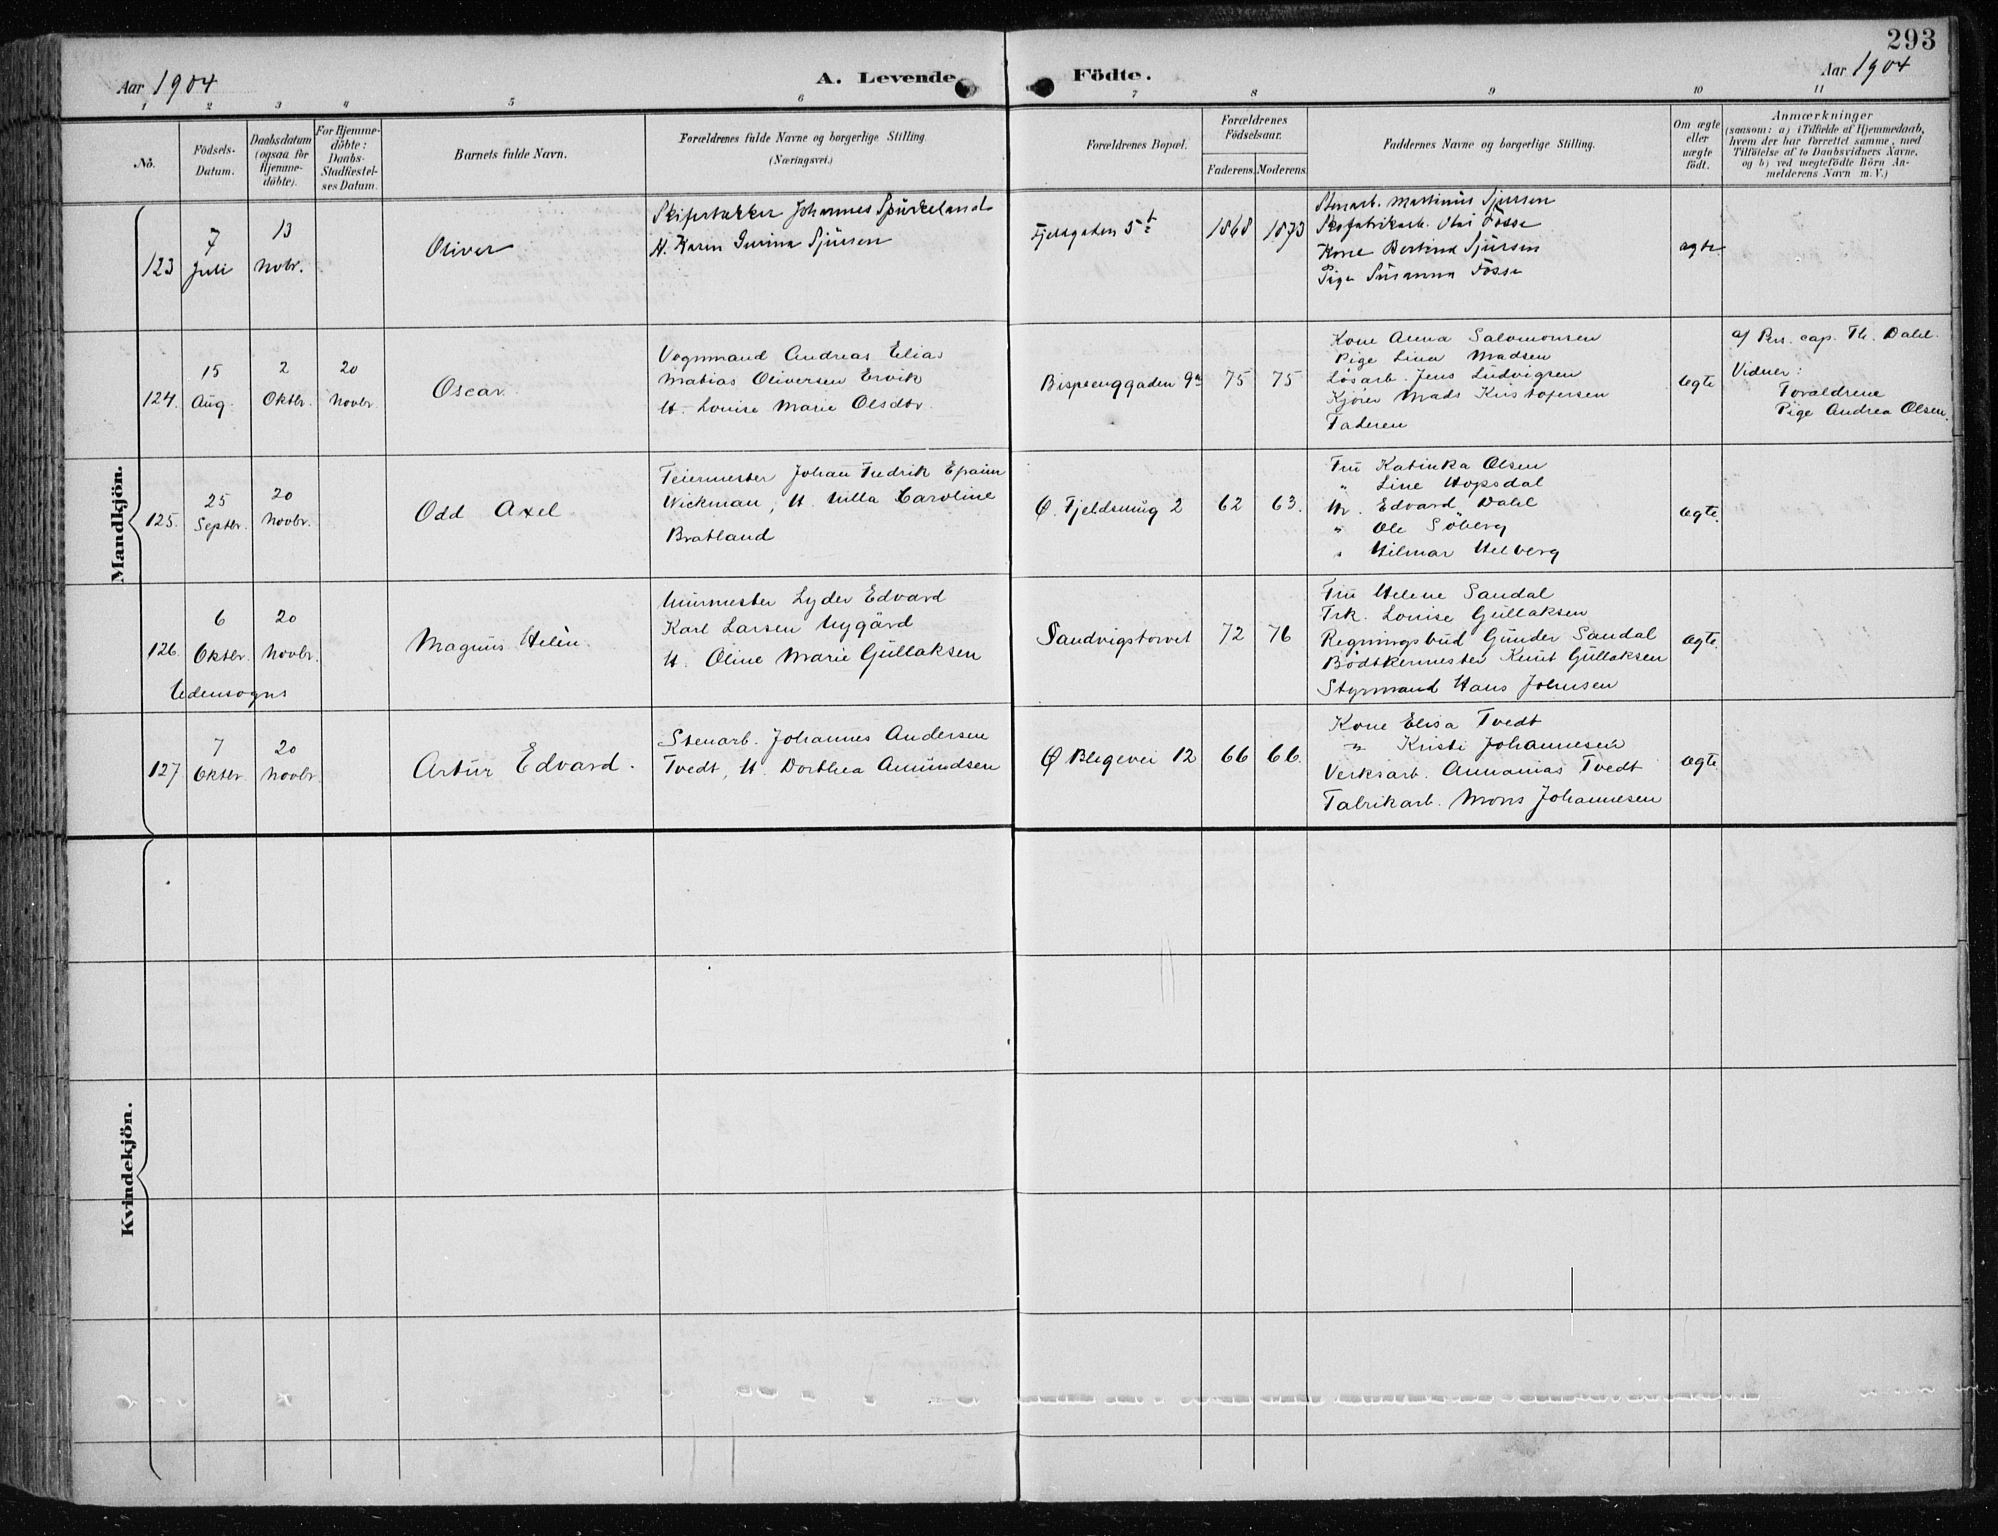 293
Aar 1904
A. Levende
Födte.
Aar 1904
1 2 3 4 5 6 7 8 9 10 11
No.
Födsels-Datum.
Daabsdatum (ogsaa for Hjemmedöbte).
For Hjemmedöbte: Daabs-Stadfæstelses Datum.
Barnets fulde Navn.
Forældrenes fulde Navne og borgerlige Stilling.
(Næringsvei.)
Forældrenes Bopæl.
Forældrenes Födselsaar.
Faderens. Moderens.
Faddernes Navne og borgerlige Stilling.
Om ægte eller uægte födt.
Anmærkninger
(saasom: a) i Tilfælde af Hjemmedaab, hvem der har forrettet samme, med Tilföielse af to Daabsvidners Navne, og b) ved uægtefödte Börn Anmelderens Navn m. V.)
Mandkjön.
123
7 Juli
13 Novbr.
Oliver
Skifertækker Johannes Spürkeland
H. Karen Gurina Sjürsen
Fjeldgaden 5
1868
1873
Stenarb. Martinus Sjürsen
Skofabrikarb. Olai Fosse
Kone Bertina Sjürsen
Pige Susanna Fosse
ægte
124.
15 Aug.
2 Oktbr.
20 Novbr.
Oscar.
Vognmand Andreas Elias
Matias Oliversen Ervik
H. Louise Marie Olsdtr.
Bispeenggaden 9a
75
75
Kone Anna Salomonsen
Pige Lina Madsen
Lösarb. Jens Ludvigsen
Kjörer Mads Kristofersen
Faderen
ægte
af Pers. cap. Th. Dahl.
Vidner:
Forældrene
Pige Andrea Olsen.
125.
25 Septbr.
20 Novbr.
Odd Axel
Feiermester Johan Fredrik Epaim
Wickman, H. Milla Caroline
Bratland
Ø. Fjeldsmug 2
62
63.
Frü Katinka Olsen
" Line Hopsdal
Hr. Edvard Dahl
" Ole Söberg
" Hilmar Helberg
ægte.
126.
6 Oktbr.
20 Novbr.
Udensogns
Magnüs Helèn.
Mürmester Lyder Edvard
Karl Larsen Nygård
H. Oline Marie Güllaksen
Sandvigstorvet
72
76
Frü Helene Sandal
Frk. Louise Güllaksen
Regningsbüd Günder Sandal
Bödtkermester Knut Güllaksen
Styrmand Hans Johnsen
ægte.
127
7 Oktbr.
20 Novbr
Artür Edvard.
Stenarb. Johannes Andersen
Tvedt, H. Dorthea Amündsen
Ø Blegevei 12
66
66.
Kone Elisa Tvedt
" Kristi Johannesen
Verksarb. Annanias Tvedt
Fabrikarb. Mons Johannesen
ægte.
Kvindekjön.